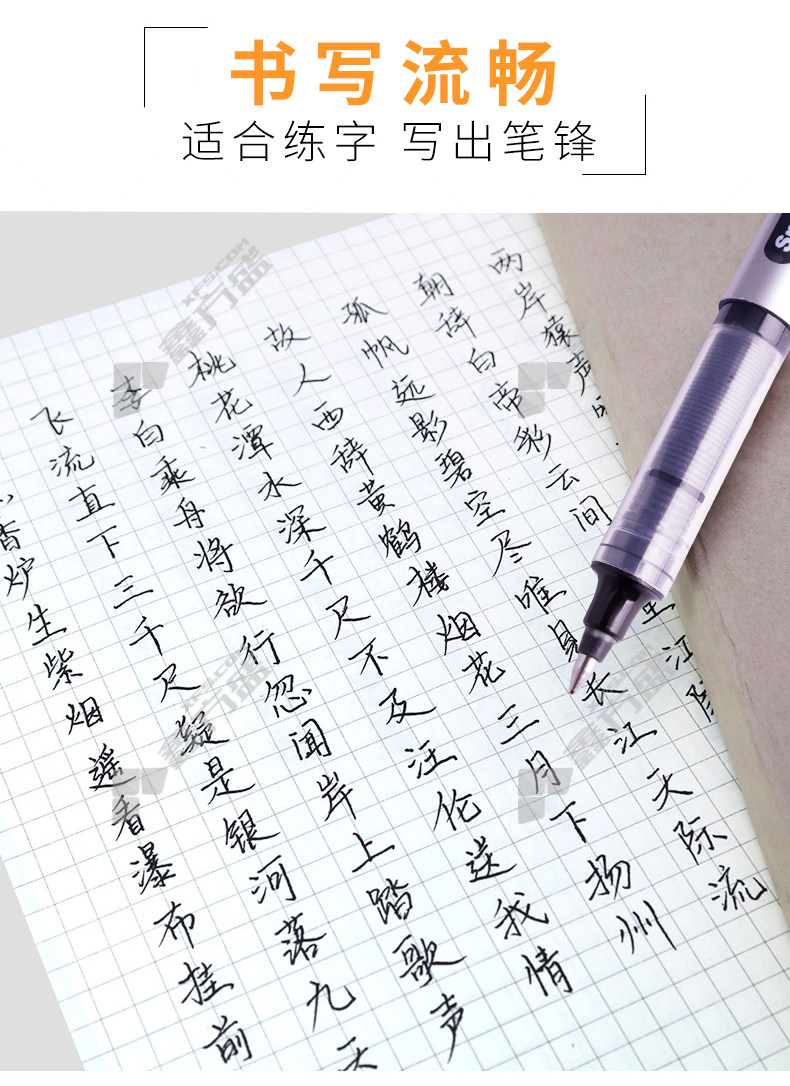 书写流畅
适合练字 写出笔锋
香炉生紫烟遥看瀑布挂前
飞流直下三千尺疑是银河落九天
李白乘舟将欲行忽闻岸上踏歌声
桃花潭水深千尺不及汪伦送我情
故人西辞黄鹤楼烟花三月下扬州
孤帆远影碧空尽唯见长江天际流
朝辞白帝彩云间
江陵
两岸猿声
鑫方盛
XFS.COM
鑫方盛
XFS.COM
鑫方盛
鑫方盛